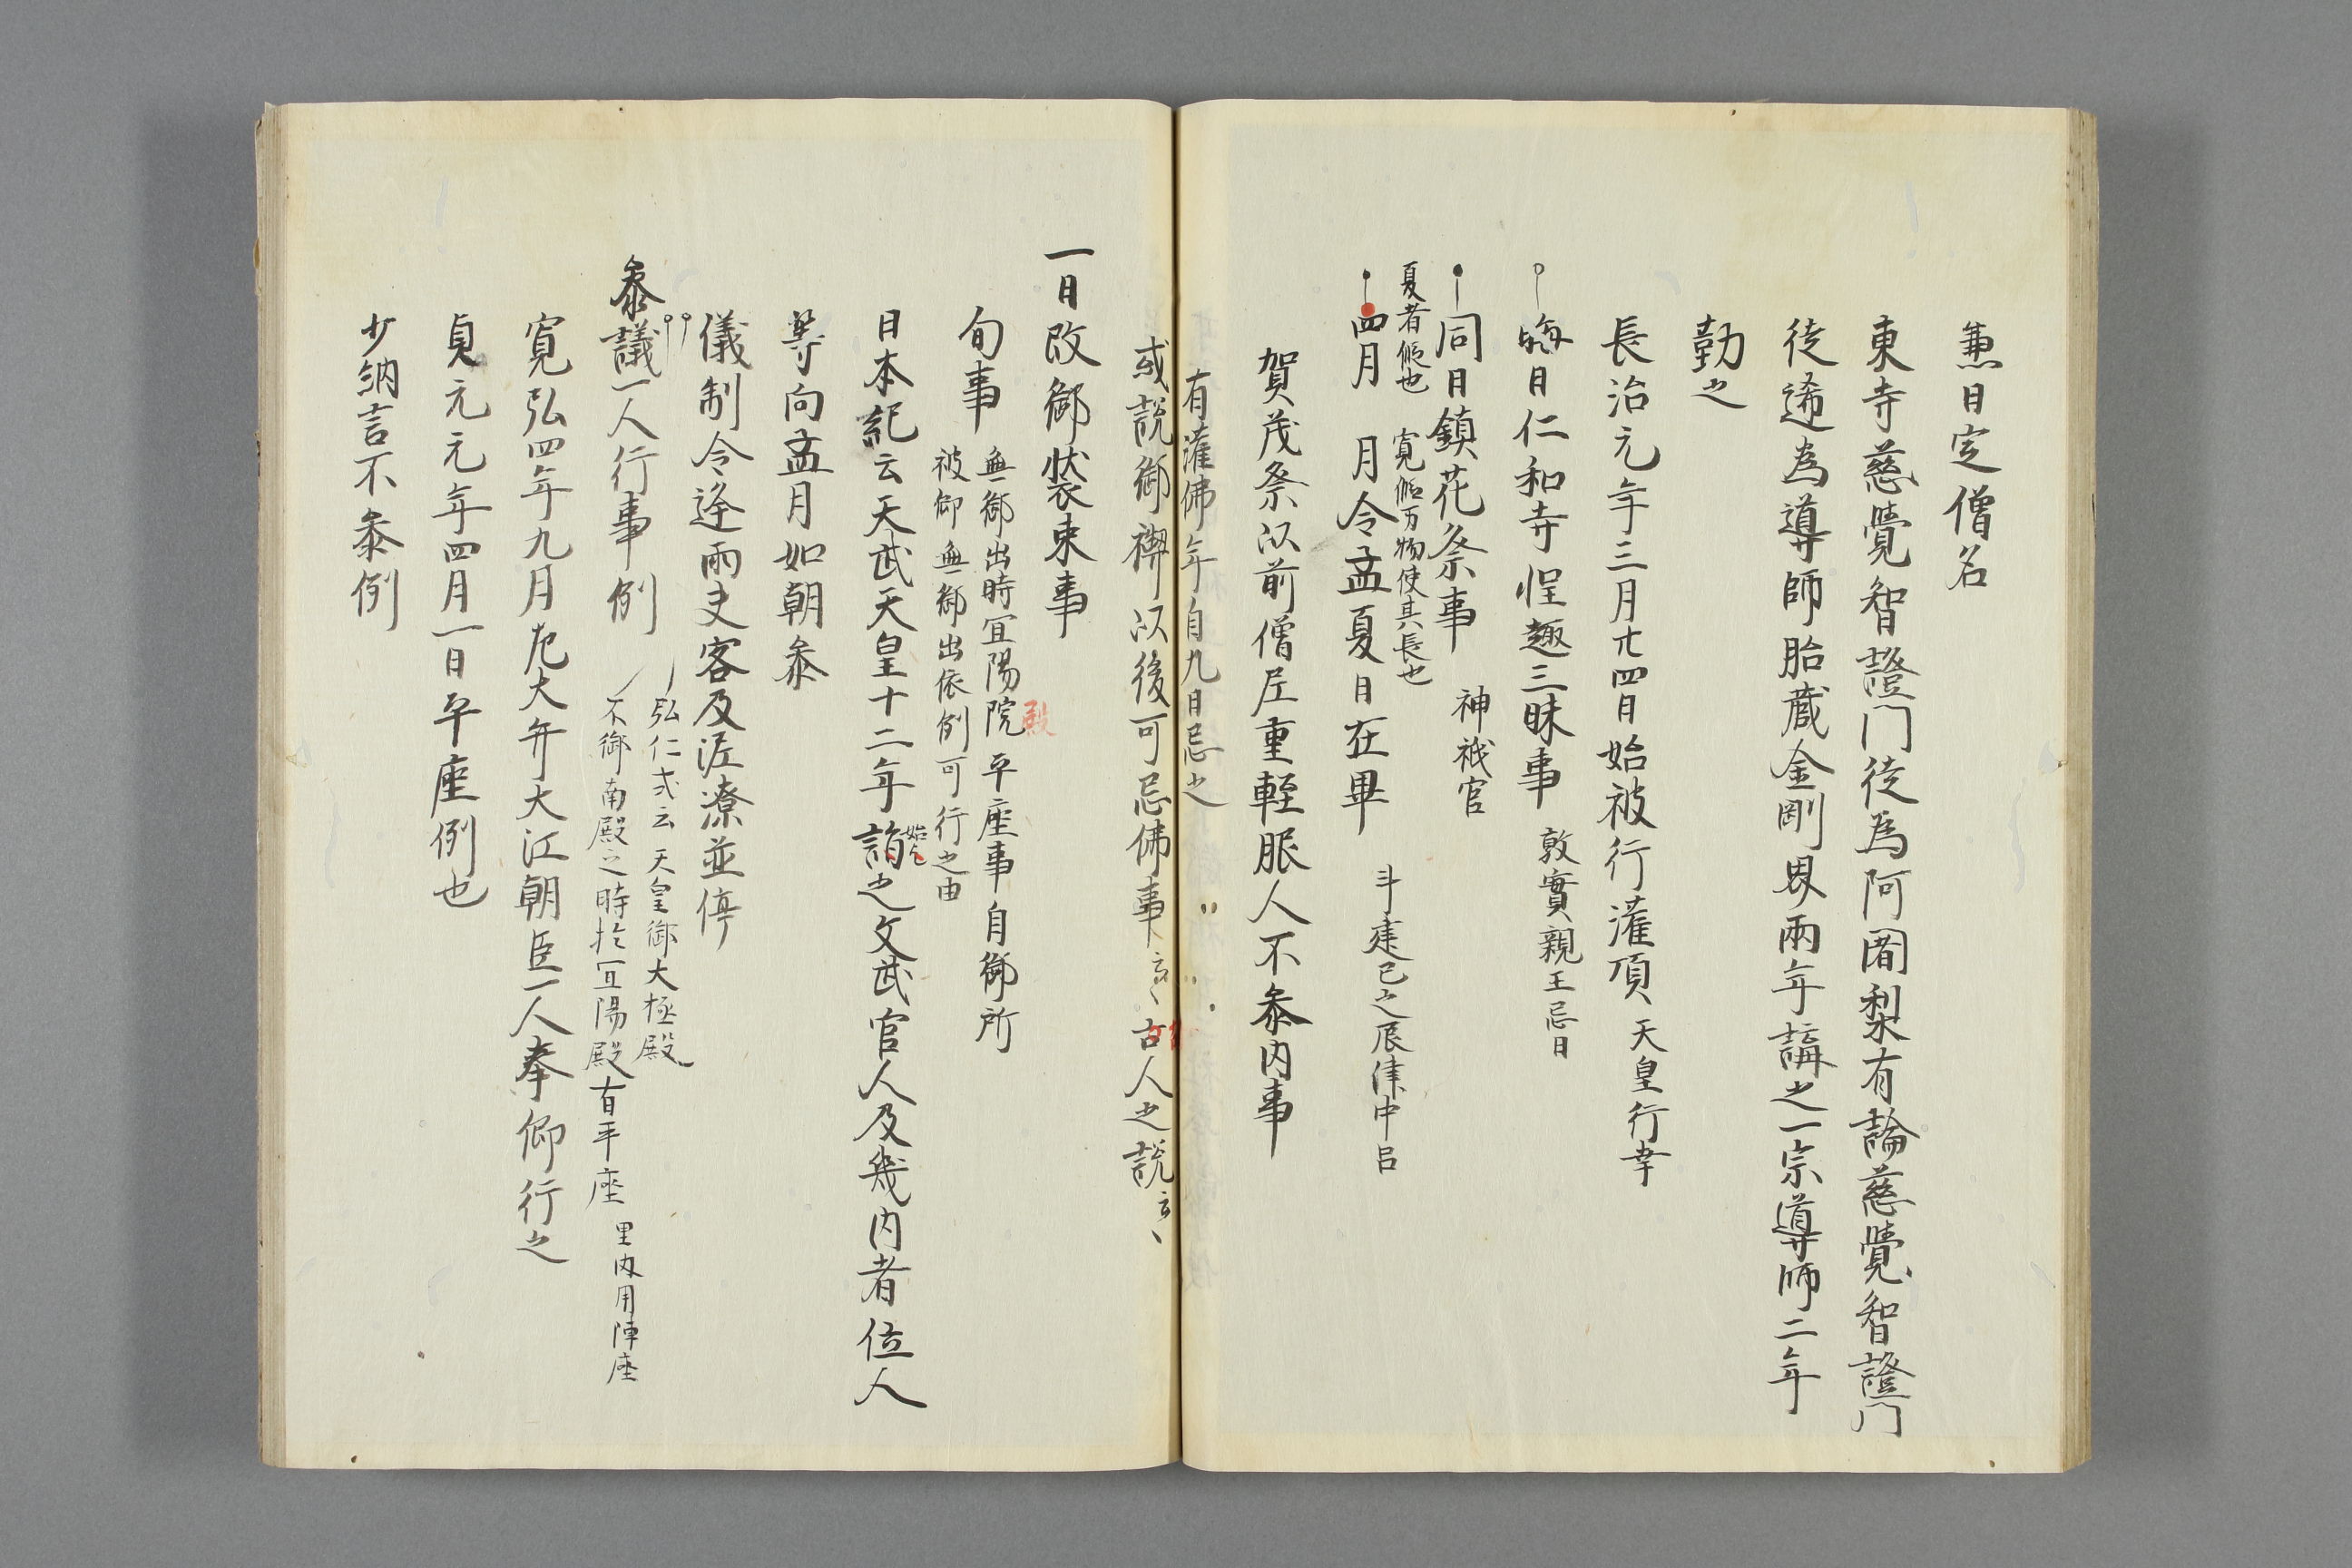 兼日定僧名
東寺慈覺智證門徒為阿闍梨有論慈覺智證門
徒遞為導師胎蔵金剛界兩年講之一宗導師二年
勤之
長治元年三月廿四日始被行灌頂 天皇行幸
晦日仁和寺惶趣三昧事 敦實親王忌日
同日鎮花祭事 神祇官
夏者假也 寛假万物使其長也
四月 月令孟夏日在畢 斗建巳之辰律中呂
賀茂祭以前僧尼重軽服人不参内事
有灌佛年自九日忌之
或説御禊以後可忌佛事云々古人之説云々
一日改御装束事
旬事 無御出時宜陽院 平座事自御所
殿
被仰無御出依例可行之由
日本紀云天武天皇十二年詔之文武官人及幾内者位人
等向孟月如朝参
儀制令逢雨失容及泥潦並停
参議一人行事例 弘仁式云 天皇御大極殿
不御南殿之時於宜陽殿有平座 里内用陣座
寛弘四年九月左大弁大江朝臣一人奉仰行之
貞元元年四月一日平座例也
少納言不参例